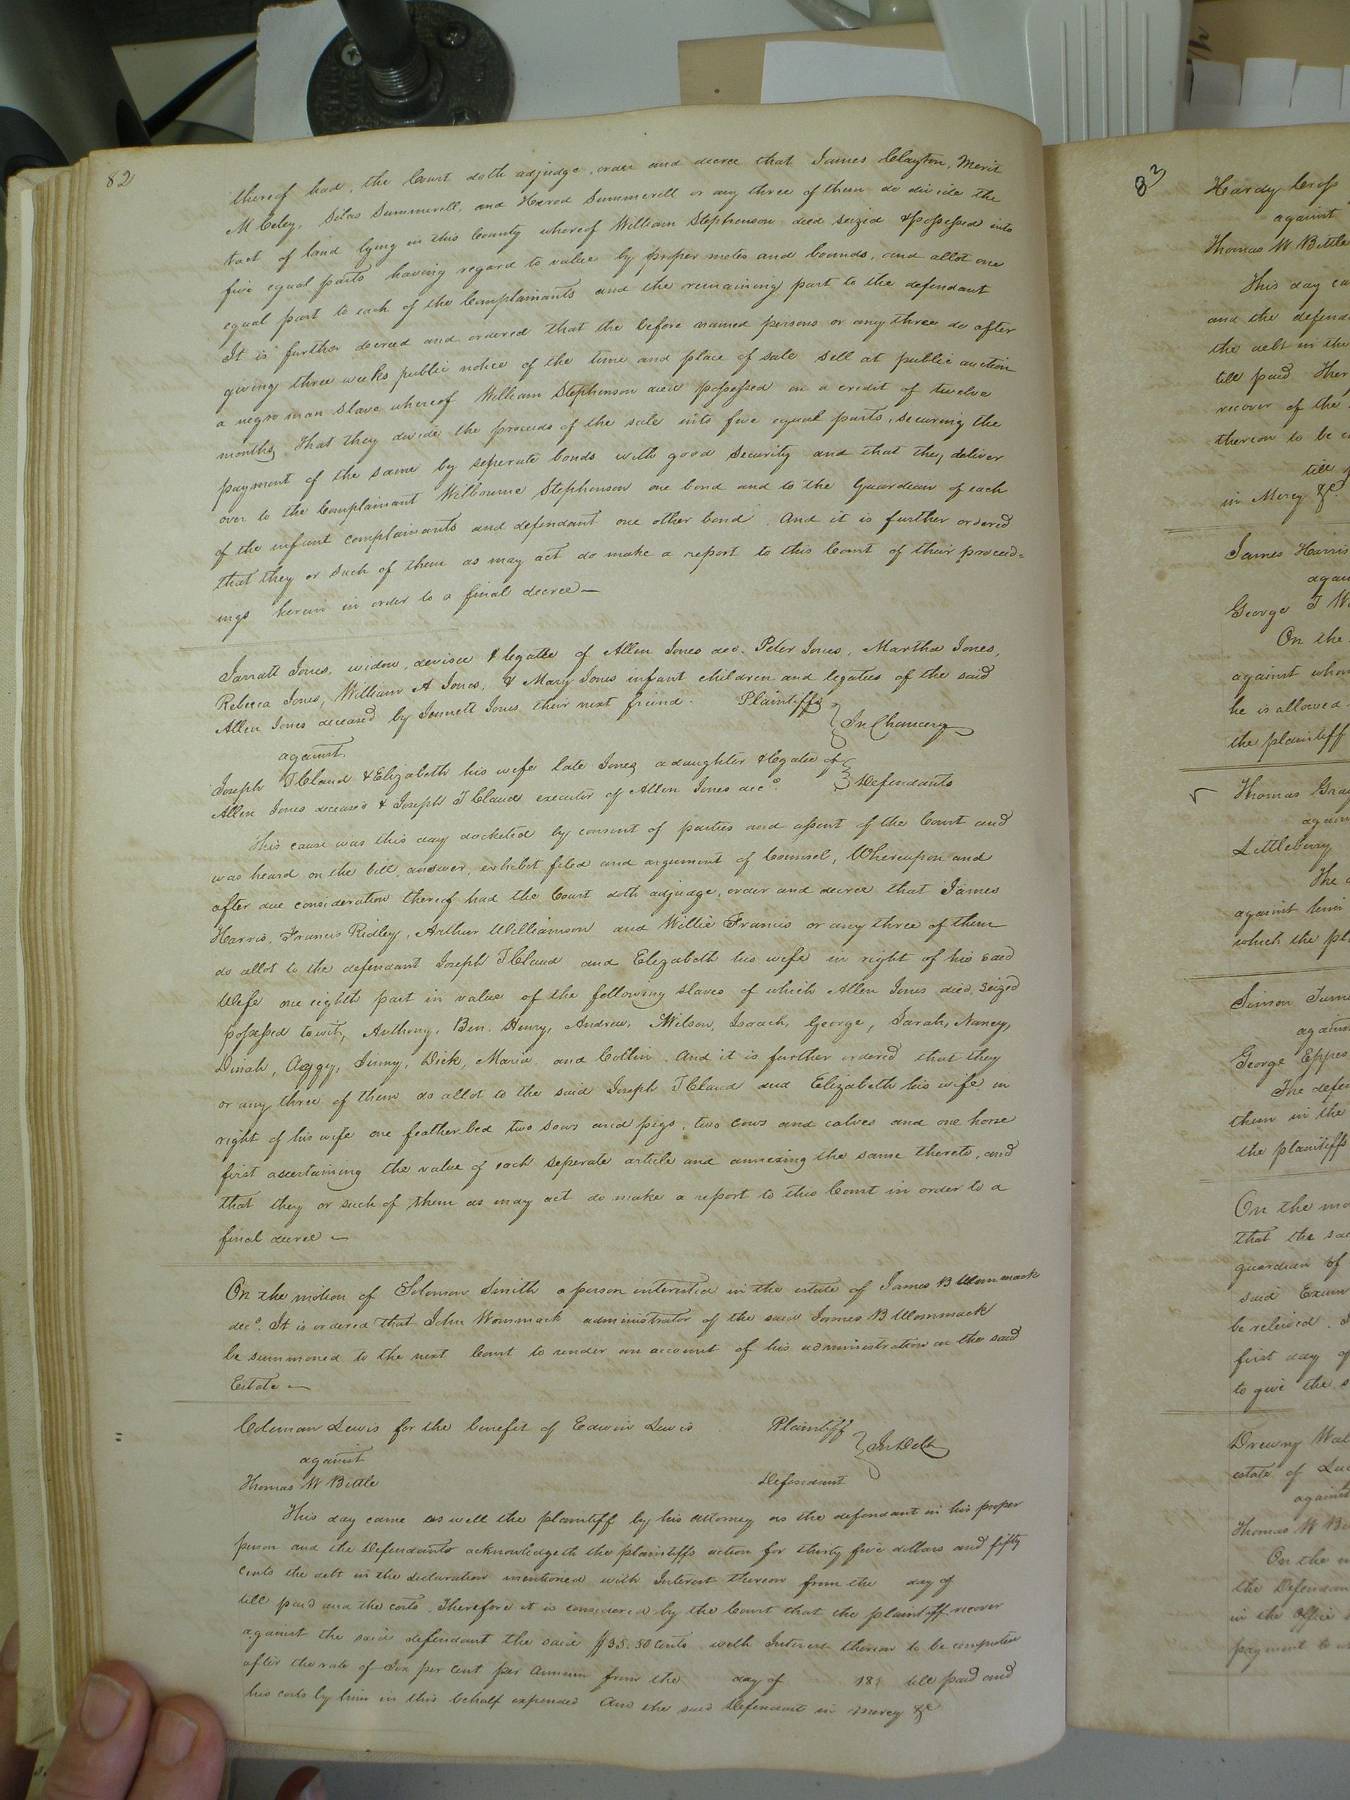 82
thereof had, the Court doth adjudge, order and decree that James Clayton, Merit
M Celey, Silas Summerell, and Herod Summerell or any three of them do divide the
tract of land lying in this County whereof William Stephenson died seized & possessed into
five equal parts having regard to value by proper metes and bounds, and allot one
equal part to each of the Complainants and the remaining part to the defendant
It is further decreed and ordered that the before named persons or any three do after
giving three weeks public notice of the time and place of sale sell at public auction
a negro man slave whereof William Stephenson died possessed on a credit of twelve
months. That they divide the proceeds of the sale into five equal parts, securing the
payment of the same by seperate bonds with good security and that they deliver
over to the Complainant Wilbourne Stephenson one bond and to the Guardian of each
of the infant complainants and defendant one other bond. And it is further ordered
that they or such of them as may act do make a report to this Court of their proceed=
ings herein in order to a final decree—
Jarratt Jones, widow, devisee & legatee of Allen Jones dec. Peter Jones, Martha Jones,
Rebecca Jones, William A Jones, & Mary Jones infant children and legatees of the said
Allen Jones deceased by Jennett Jones their next friend. Plaintiffs
In Chancery
against
Joseph T Claud & Elizabeth his wife late Jones a daughter & legatee of
Allen Jones deceased & Joseph T Claud executor of Allen Jones decd. Defendants
This cause was this day docketed by consent of parties and assent of the Court and
was heard on the bill, answer, exhibit filed and argument of Counsel, Whereupon and
after due consideration thereof had the Court doth adjudge, order and decree that James
Harris, Francis Ridley, Arthur Williamson and Willie Francis or any three of them
do allot to the defendant Joseph T Claud and Elizabeth his wife in right of his said
Wife one eighth part in value of the following slaves of which Allen Jones died, seized
possessed towit, Anthony, Ben, Henry, Andrew, Wilson, Isaach, George, Sarah, Nancy,
Dinah, Aggy, Jinny, Dick, Maria and Collin. And it is further ordered that they
or any three of them do allot to the said Joseph T Claud and Elizabeth his wife in
right of his wife one feather bed two sows and pigs, two cows and calves and one horse
first ascertaining the value of each seperate article and annexing the same thereto, and
that they or such of them as may act do make a report to this Court in order to a
final decree—
On the motion of Solomon Smith a person interested in the estate of James B Wommack
decd. It is ordered that John Wommack administrator of the said James B Wommack
be summoned to the next Court to render an account of his administration on the said
Estate—
Coleman Lewis for the benefit of Edwin Lewis Plaintiff
In Debt
against
Thomas W Bittle Defendant
This day came as well the plaintiff by his attorney as the defendant in his proper
person and the Defendants acknowledgeth the plaintiffs action for thirty five dollars and fifty
cents the debt in the declaration mentioned with Interest thereon from the day of
till paid and the costs. Therefore it is considered by the Court that the plaintiff recover
against the said defendant the said $35.50 cents with Interest thereon to be computed
after the rate of Six per cent per annum from the day of 18 till paid and
his costs by him in this behalf expended And the said Defendant in mercy &c
83
Hardy Cross
against
Thomas W Bittle
This day ca
and the defend
the debt in the
till paid Ther
recover of the
thereon to be c
till
in Mercy &c
James Harris
again
George T W
On the
against whom
he is allowed
the plaintiff
Thomas Gray
again
Littlebury
The
against him
which the pl
Simon Turne
against
George Eppes
The defen
them in the
the plaintiffs
On the mo
that the said
guardian of
said Exam
be released
first day of
to give the s
Drewry Wal
estate of
against
Thomas W Bi
On the m
the Defendan
in the Office
payment to